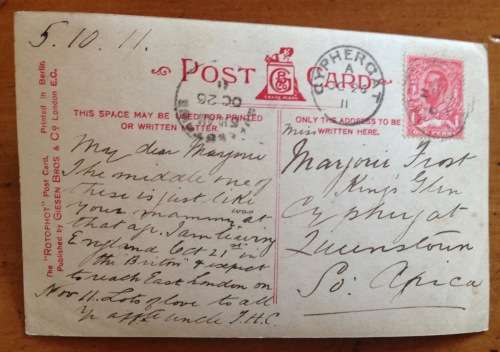 5.10.11.
POST CARD
TRADE MARK
CYPHERGAT
A
OC 26
11
OC 26
THIS SPACE MAY BE USED FOR PRINTED
OR WRITTEN MATTER.
ONLY THE ADDRESS TO BE
WRITTEN HERE.
The "ROTOPHOT" Post Card. Printed in Berlin.
Published by GIESEN BROS & Co London E.C.
My dear Marjorie
The middle one of
these is just like
your mamma was at
that age. I am leaving
England Oct 21st in
the "Briton" & expect
to reach East London on
Nov 11. Lots of love to all
Yr affte uncle J.H.C.
Miss
Marjorie Frost
Kings Glen
Cyphergat
Queenstown
So. Africa